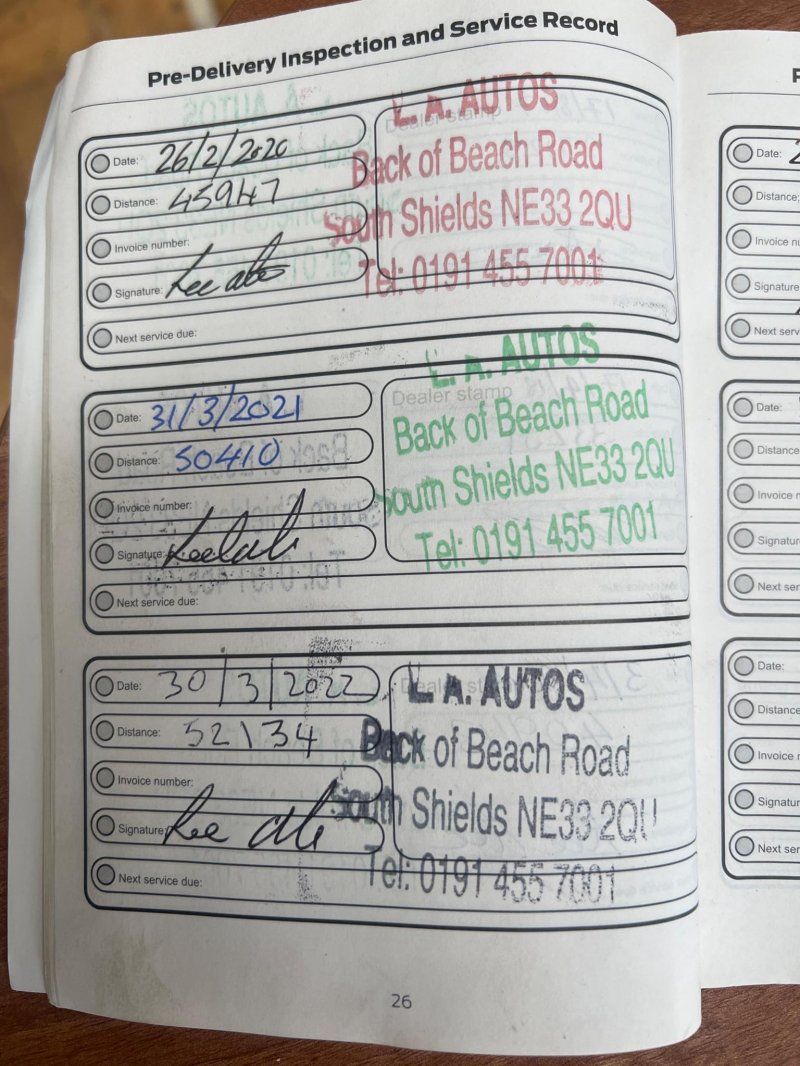 Pre-Delivery Inspection and Service Record
Date: 26/2/2020
Distance: 45947
Invoice number:
Signature:
Next service due:
Dealer stamp
L. A. AUTOS
Back of Beach Road
South Shields NE33 2QU
Tel: 0191 455 7001
Date: 31/3/2021
Distance: 50410
Invoice number:
Signature:
Next service due:
Dealer stamp
L. A. AUTOS
Back of Beach Road
South Shields NE33 2QU
Tel: 0191 455 7001
Date: 30/3/2022
Distance: 52134
Invoice number:
Signature:
Next service due:
Dealer stamp
L. A. AUTOS
Back of Beach Road
South Shields NE33 2QU
Tel: 0191 455 7001
26
Date:
Distance:
Invoice
Signature
Next
Date:
Distance
Invoice
Signatur
Next ser
Date:
Distance
Invoice
Signatur
Next ser